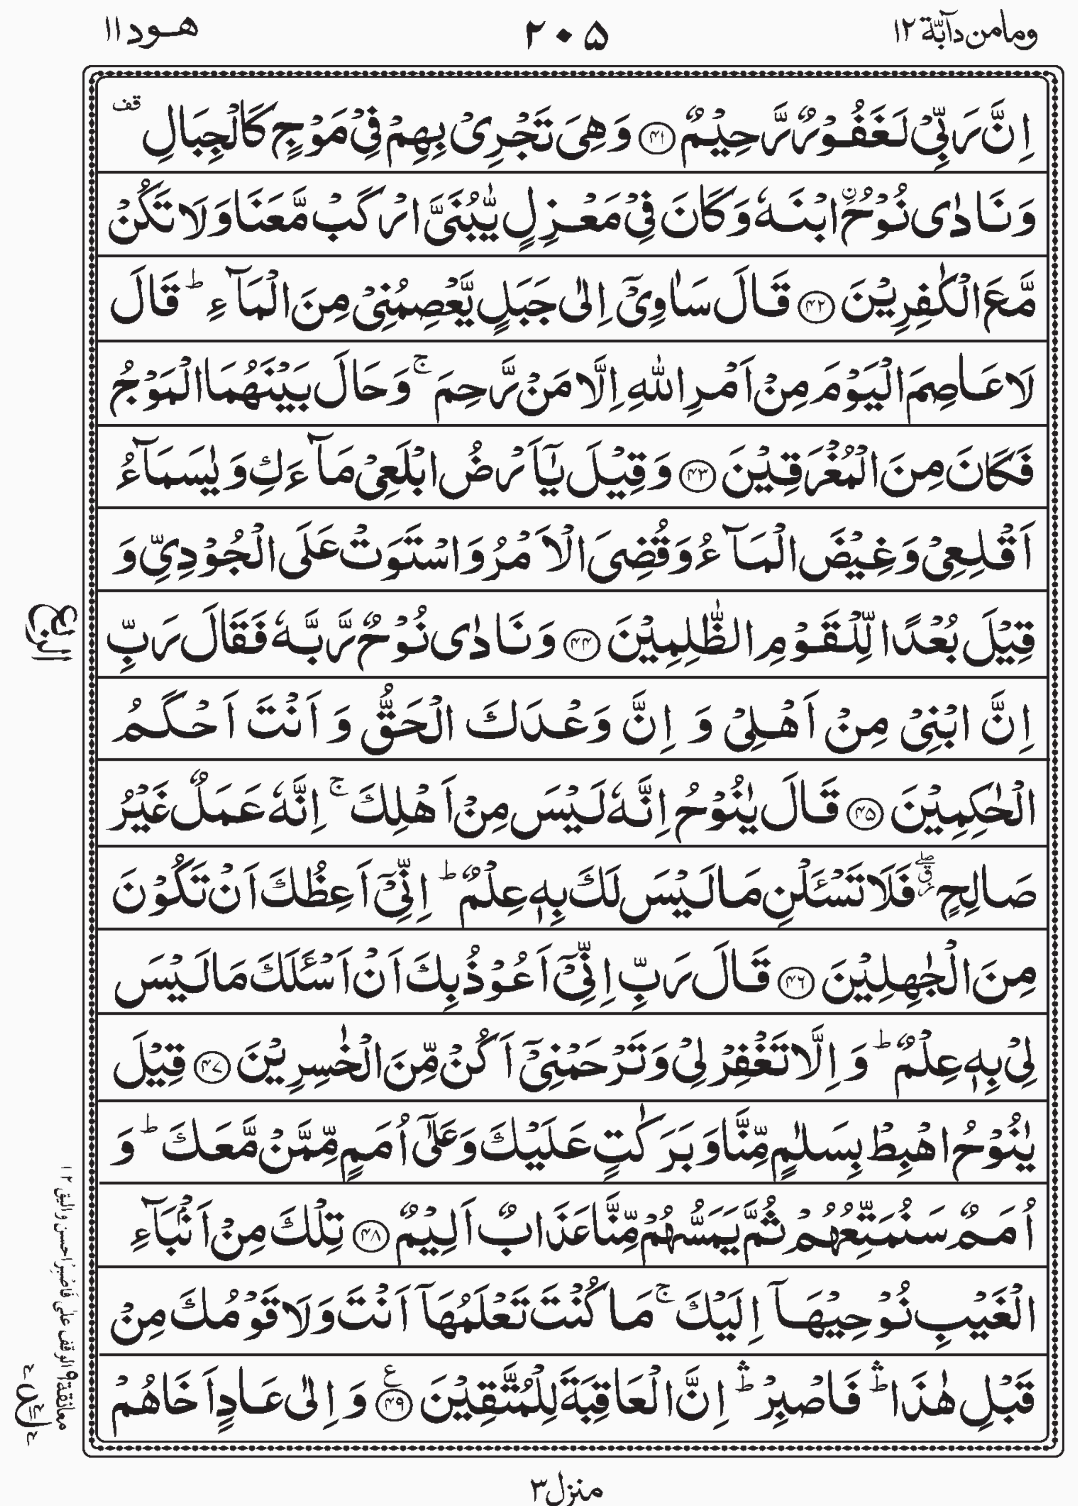 وما من دآبّة ١٢
٢٠٥
هود ١١
اِنَّ رَبِّىْ لَغَفُوْرٌ رَّحِيْمٌ ﴿۴۱﴾ وَهِىَ تَجْرِىْ بِهِمْ فِىْ مَوْجٍ كَالْجِبَالِ قف
وَنَادٰى نُوْحُ ۨ ابْنَهٗ وَكَانَ فِىْ مَعْزِلٍ يّٰبُنَىَّ ارْكَبْ مَّعَنَا وَلَا تَكُنْ
مَّعَ الْكٰفِرِيْنَ ﴿۴۲﴾ قَالَ سَاٰوِىْٓ اِلٰى جَبَلٍ يَّعْصِمُنِىْ مِنَ الْمَآءِ ؕ قَالَ
لَا عَاصِمَ الْيَوْمَ مِنْ اَمْرِ اللّٰهِ اِلَّا مَنْ رَّحِمَ ۚ وَحَالَ بَيْنَهُمَا الْمَوْجُ
فَكَانَ مِنَ الْمُغْرَقِيْنَ ﴿۴۳﴾ وَقِيْلَ يٰٓاَرْضُ ابْلَعِىْ مَآءَكِ وَيٰسَمَآءُ
اَقْلِعِىْ وَغِيْضَ الْمَآءُ وَقُضِىَ الْاَمْرُ وَاسْتَوَتْ عَلَى الْجُوْدِىِّ وَ
قِيْلَ بُعْدًا لِّلْقَوْمِ الظّٰلِمِيْنَ ﴿۴۴﴾ وَنَادٰى نُوْحٌ رَّبَّهٗ فَقَالَ رَبِّ
اِنَّ ابْنِىْ مِنْ اَهْلِىْ وَ اِنَّ وَعْدَكَ الْحَقُّ وَ اَنْتَ اَحْكَمُ
الْحٰكِمِيْنَ ﴿۴۵﴾ قَالَ يٰنُوْحُ اِنَّهٗ لَيْسَ مِنْ اَهْلِكَ ۚ اِنَّهٗ عَمَلٌ غَيْرُ
صَالِحٍ فَلَا تَسْئَلْنِ مَا لَيْسَ لَكَ بِهٖ عِلْمٌ ؕ اِنِّىْٓ اَعِظُكَ اَنْ تَكُوْنَ
مِنَ الْجٰهِلِيْنَ ﴿۴۶﴾ قَالَ رَبِّ اِنِّىْٓ اَعُوْذُ بِكَ اَنْ اَسْئَلَكَ مَا لَيْسَ
لِىْ بِهٖ عِلْمٌ ؕ وَ اِلَّا تَغْفِرْ لِىْ وَتَرْحَمْنِىْٓ اَكُنْ مِّنَ الْخٰسِرِيْنَ ﴿۴۷﴾ قِيْلَ
يٰنُوْحُ اهْبِطْ بِسَلٰمٍ مِّنَّا وَبَرَكٰتٍ عَلَيْكَ وَعَلٰٓى اُمَمٍ مِّمَّنْ مَّعَكَ ؕ وَ
اُمَمٌ سَنُمَتِّعُهُمْ ثُمَّ يَمَسُّهُمْ مِّنَّا عَذَابٌ اَلِيْمٌ ﴿۴۸﴾ تِلْكَ مِنْ اَنْۢبَآءِ
الْغَيْبِ نُوْحِيْهَآ اِلَيْكَ ۚ مَا كُنْتَ تَعْلَمُهَآ اَنْتَ وَلَا قَوْمُكَ مِنْ
قَبْلِ هٰذَا ۛؕ فَاصْبِرْ ۛؕ اِنَّ الْعَاقِبَةَ لِلْمُتَّقِيْنَ ﴿۴۹﴾ ع وَ اِلٰى عَادٍ اَخَاهُمْ
الربع
معانقة ٩ الوقف على فَاصْبِرْ احسن واليق ١٢
منزل ٣